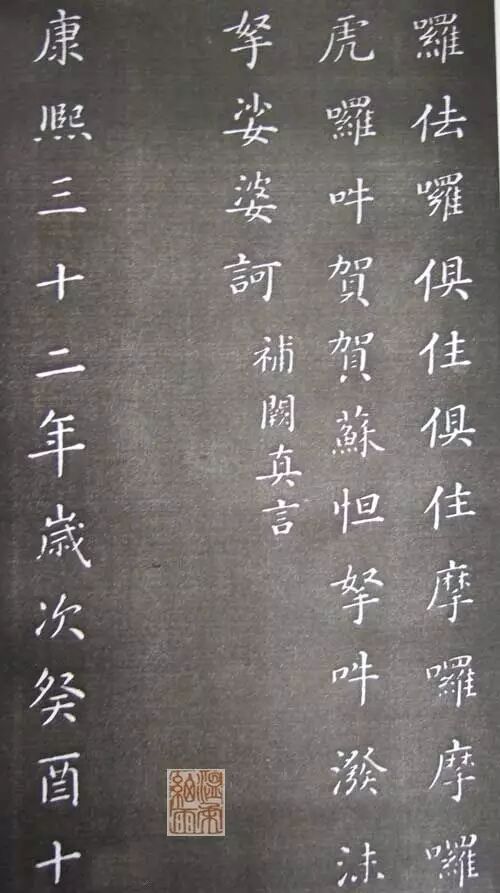 羅佉囉俱住俱住摩囉摩囉
虎囉吽賀賀蘇怛拏吽潑沫
拏娑婆訶
補闕真言
康熙三十二年嵗次癸酉十